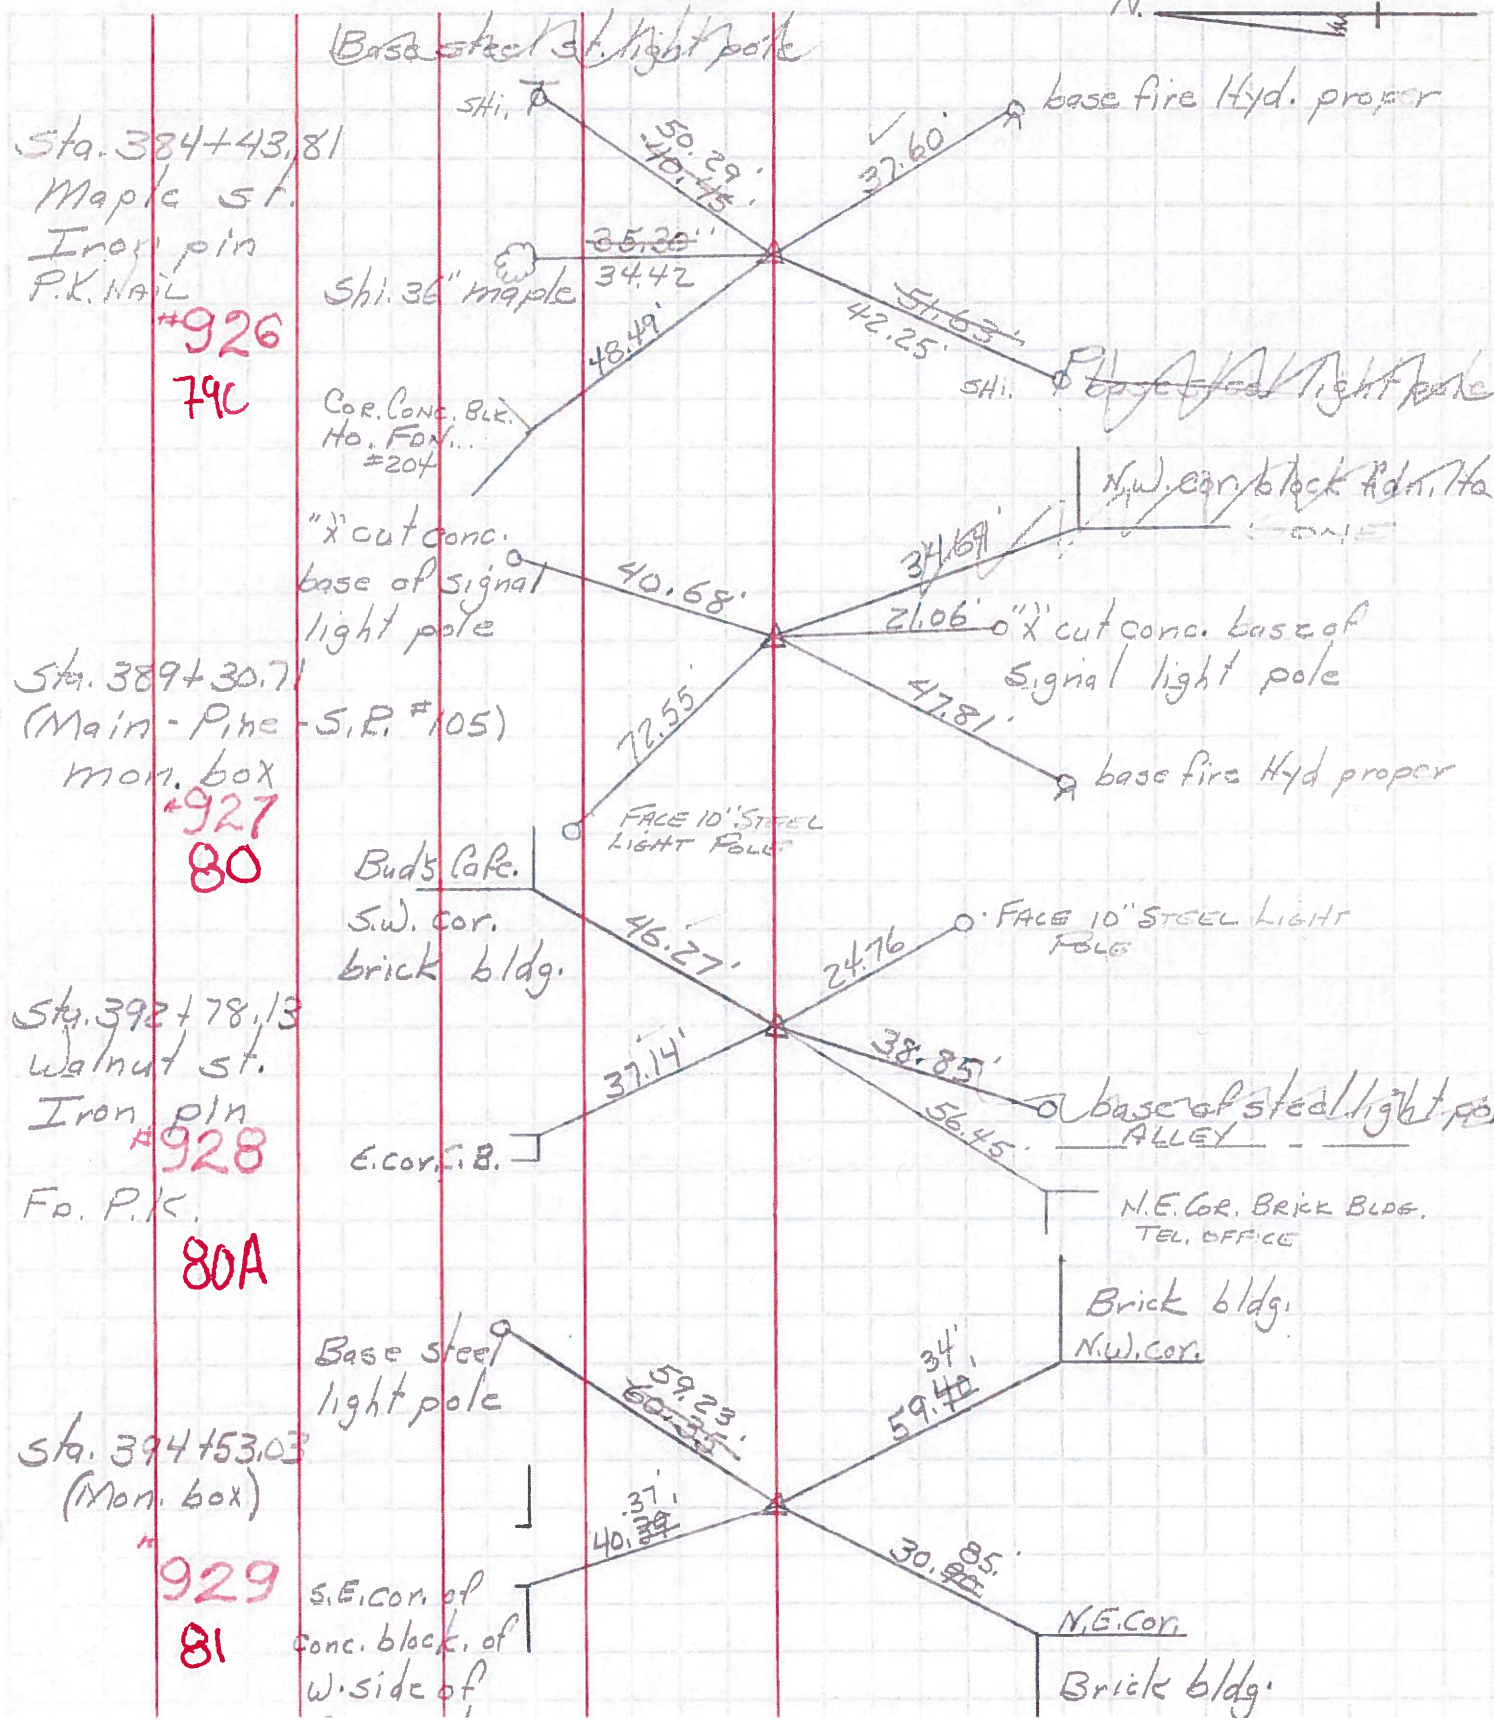 N.
Base steel st. light pole
SHi.
base fire Hyd. proper
50.29'
40.45'
37.60'
Sta. 384+43.81
Maple st.
Iron pin
P.K. NAIL
#926
79C
Shi. 36" maple
35.30'
34.42
48.49'
51.63'
42.25'
SHi.
base steel light pole
COR. CONC. BLK.
HO. FDN.
#204
N.W. cor. block Fdn. Ho
GONE
"X" cut conc.
base of signal
light pole
40.68'
34.69'
21.06'
"X" cut conc. base of
signal light pole
47.81'
72.55'
Sta. 389+30.71
(Main - Pine - S.R. #105)
mon. box
#927
80
base fire Hyd proper
FACE 10" STEEL
LIGHT POLE
Bud's Cafe.
S.W. cor.
brick bldg.
46.27'
24.76
FACE 10" STEEL LIGHT
POLE
Sta. 392+78.13
Walnut st.
Iron pin
#928
Fd. P.K.
80A
37.14'
38.85'
56.45'
E. cor. C.B.
base of steel light po
ALLEY
N.E. COR. BRICK BLDG.
TEL. OFFICE
Brick bldg.
N.W. cor.
Base steel
light pole
59.23'
60.35'
34'
59.40
Sta. 394+53.03
(Mon. box)
929
81
37'
40.39
85.
30.90
S.E. cor. of
conc. block. of
W. side of
N.E. Cor.
Brick bldg.